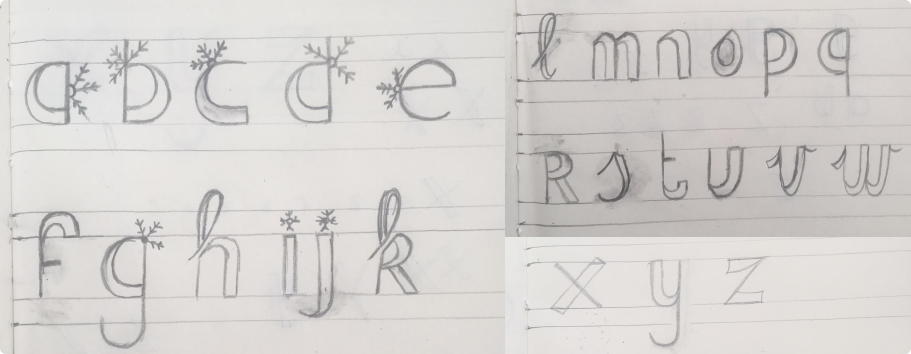 a b c d e
f g h i j k
l m n o p q
R s t u v w
x y z